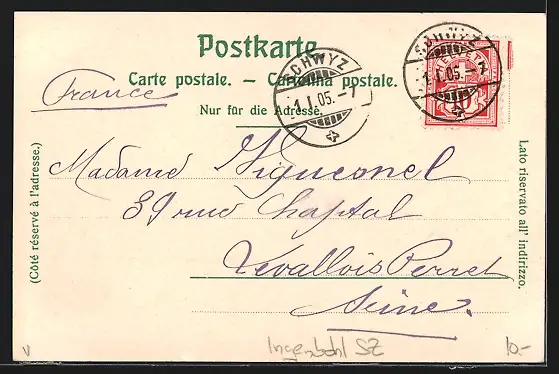 Postkarte.
Carte postale. — Cartolina postale.
Nur für die Adresse.
France
SCHWYZ
1.I.05.-7
SCHWYZ
1.I.05.-7
HELVETIA
10
Madame Viguesnel
39 rue Chaptal
Levallois Perret
Seine.
(Côté réservé à l'adresse.)
Lato riservato all' indirizzo.
Ingenbohl SZ
10.-
v